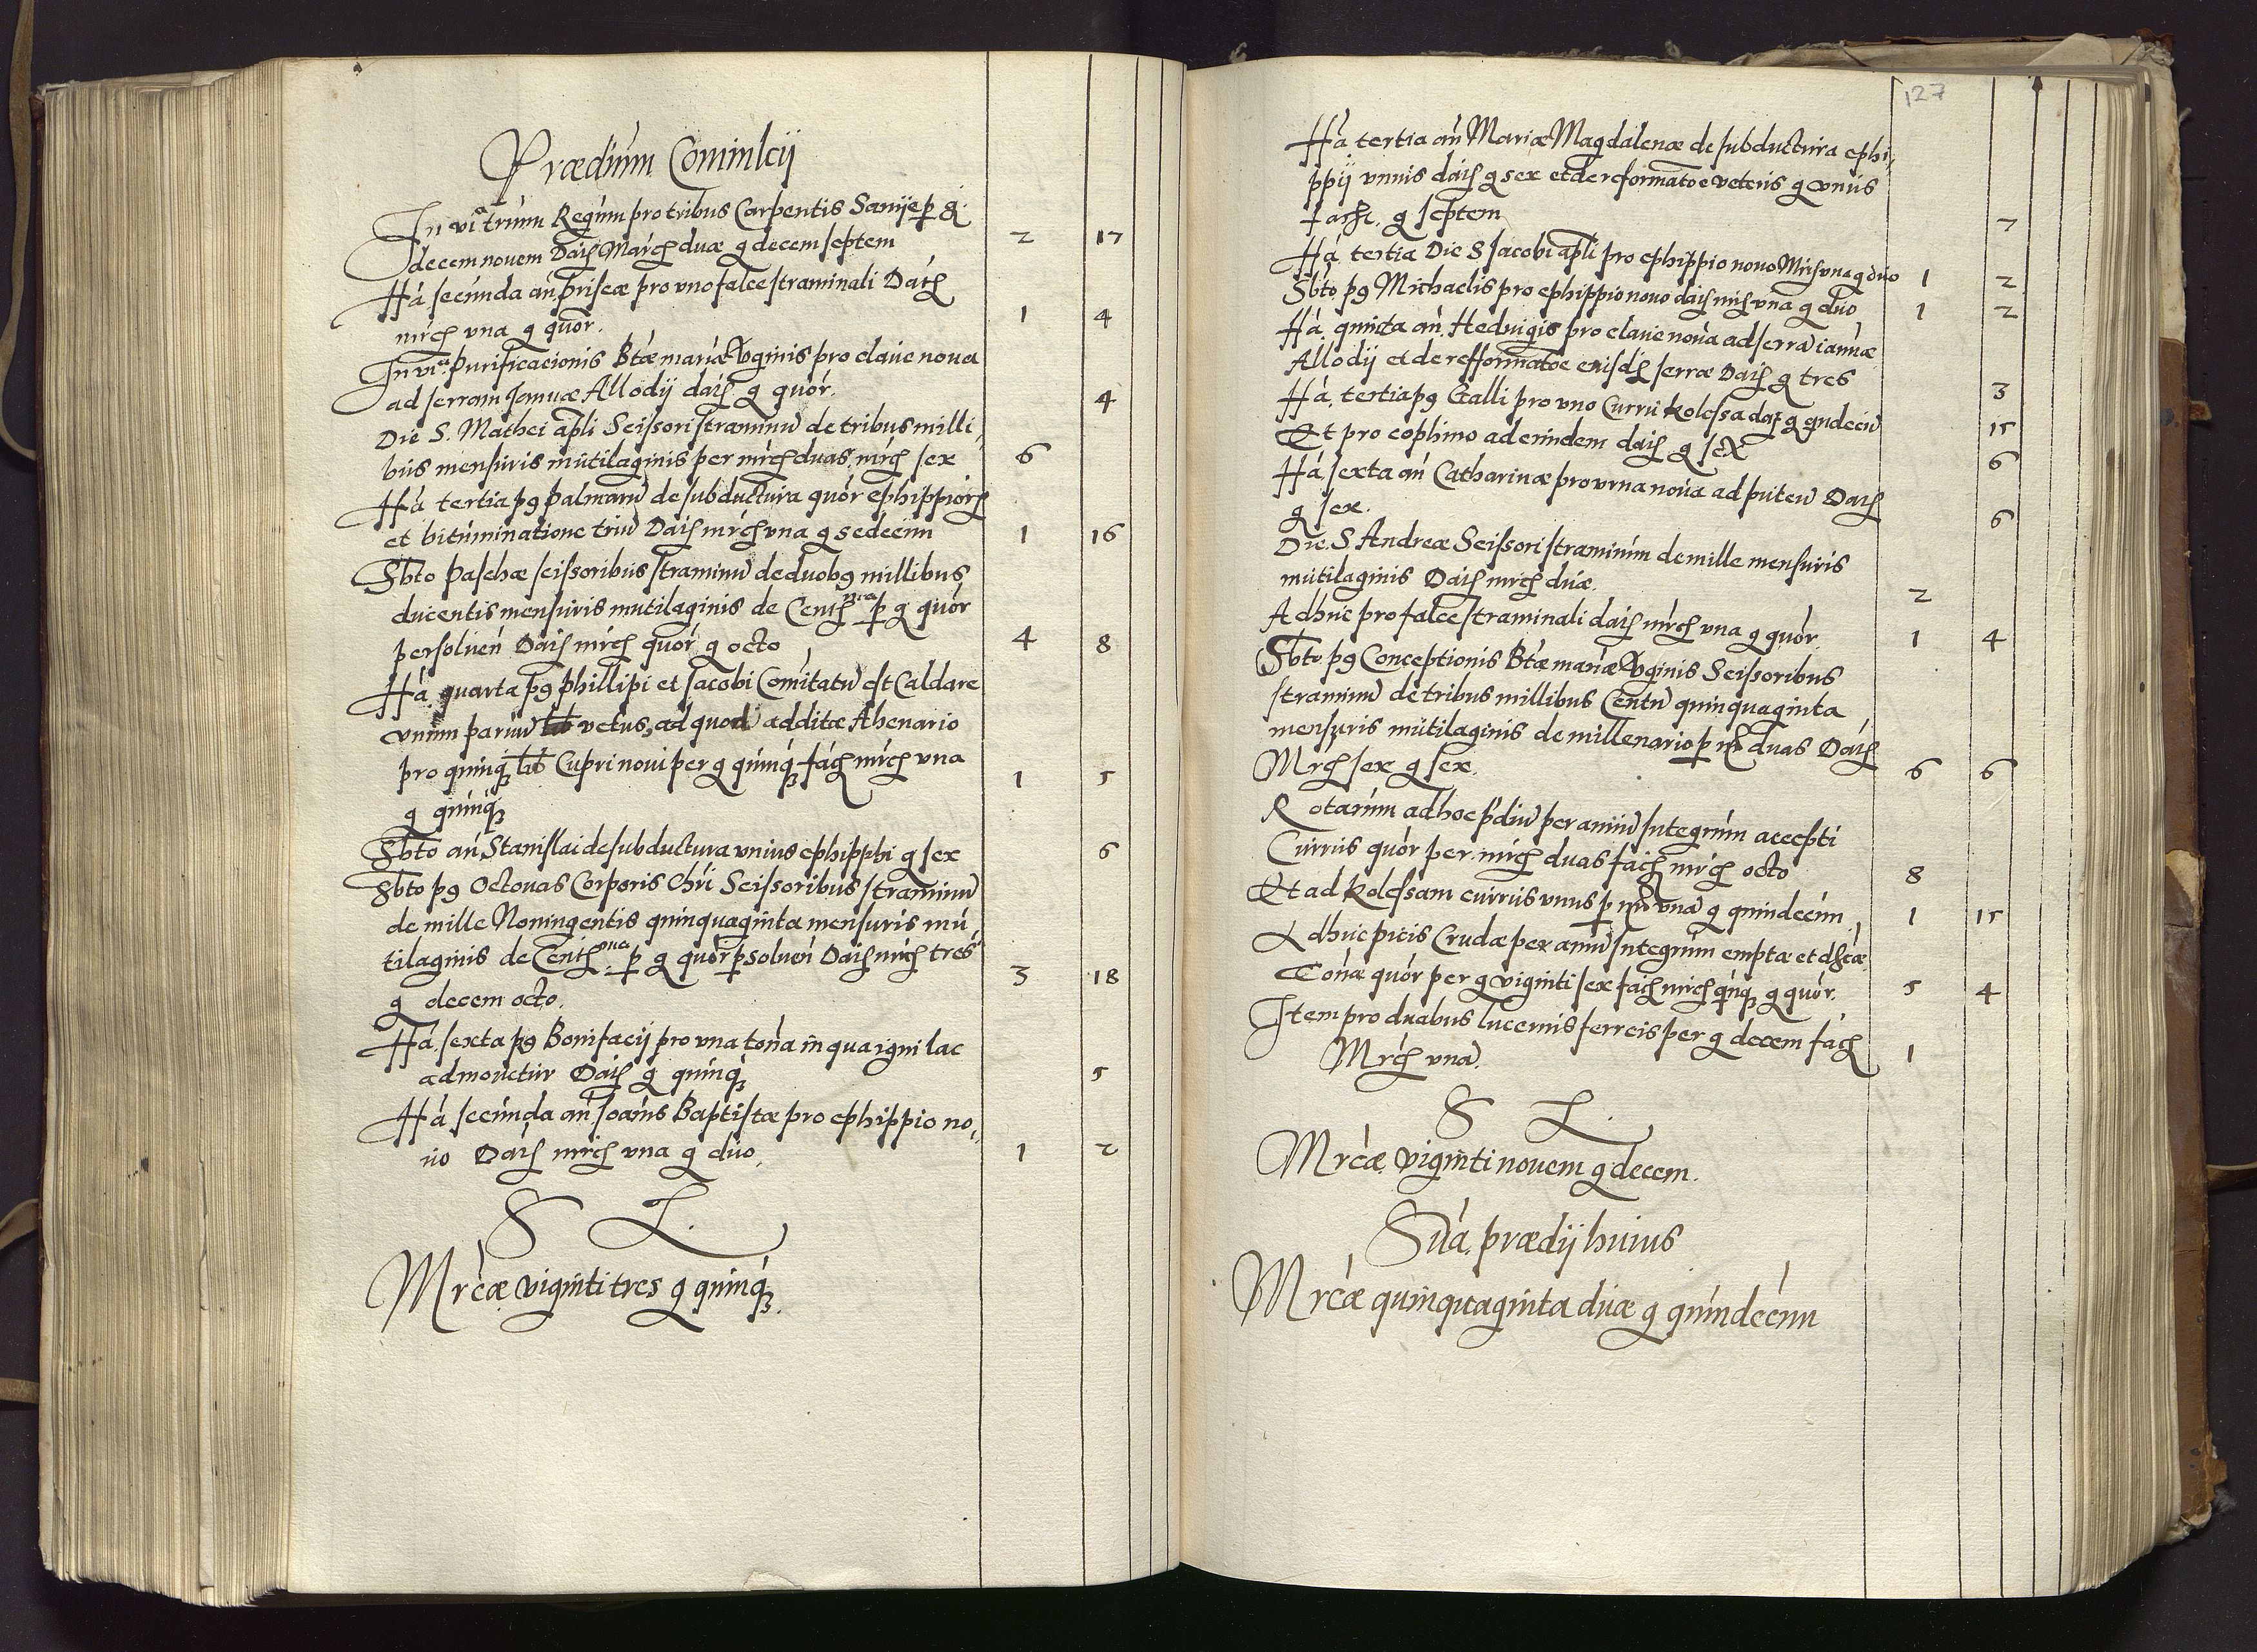 Prædium Cominlcij
In vi.ᵃ trium Regum pro tribus Carpentis Sanije p g.
decem novem Dat͠ Marc͠ duæ g decem septem 2 17
Fr͠a secunda an̄ Priscæ pro uno falce straminali Dat͠
mrc͠ una g quor. 1 4
In vi.ᵃ Purificacionis Btæ mariæ Vginis pro clave nova
ad serram Januæ Allodij dat͠ g quor. 4
Die S. Mathei apli Scissori straminu͠ de tribus milli,
bus mensuris mutilaginis per mrc͠ duas, mrc͠ sex 6
Fr͠a tertia pꝰ palmaru͠ de subductura quor ephippior͠
et bituminatione triu͠ Dat͠ mrc͠ una g sedecim 1 16
Sbto Paschæ scissoribus straminu͠ de duobꝰ millibus
ducentis mensuris mutilaginis de Cent͠ⁿᵃ p g quor
persoluen̄ Dat͠ mrc͠ quor g octo 4 8
Fr͠a quarta pꝰ phillipi et Jacobi Comitatu͠ est Caldare
unum paruu͠ vetus, ad quod additæ Ahenario
pro quinqꝫ lib Cupri noui per g quinqꝫ fac͠ mrc͠ una 1 5
g quinqꝫ
Sbto an̄ Stanislai de subductura unius ephipphi g sex 6
Sbto pꝰ Octouas Corporis Chri Scissoribus straminu͠
de mille Noningentis quinquaginta mensuris mu
tilaginis de Cent͠ⁿᵃ p g quor psoluen̄ Dat͠ mrc͠ tres 3 18
g decem octo.
Fr͠a sexta pꝰ Bonifacij pro una tona in qua igni lac
admouetur Dat͠ g quinqꝫ 5
Fr͠a secunda an̄ Joanis Baptistæ pro ephippio no,
uo Dat͠ mrc͠ una g duo. 1 2
S L.
Mrcæ viginti tres g quinqꝫ.
127
Fr͠a tertia an̄ Mariæ Magdalenæ de subductura ephi,
ppij unius dat͠ g sex et de reformatoe veteris g unus
fac͠t. g septem 7
Fr͠a tertia Die S Jacobi apli pro ephippio nouo Mrc͠ una g duo 1 2
Sbto pꝰ Michaelis pro ephippio nouo dat͠ mrc͠ una g duo 1 2
Fr͠a quinta an̄. Heduigis pro claue noua ad serra͠ ianuæ
Allodij et de refformatoe euisd͠ serræ Dat͠ g tres 3
Fr͠a tertia pꝰ Galli pro uno Curru kolessa dat͠ g qndeci͠ 15
Et pro cophino ad eundem dat͠ g sex 6
Fr͠a sexta an̄ Catharinæ pro urna noua ad puteu͠ Dat͠
g sex. 6
Die. S Andreæ Scissori straminum de mille mensuris
mutilaginis Dat͠ mrc͠ duæ. 2
Adhuc pro falce straminali dat͠ mrc͠ una g quor. 1 4
Sbto. pꝰ Conceptionis Btæ mariæ Vginis Scissoribus
straminu͠ de tribus millibus Centu͠ quinquaginta
mensuris mutilaginis de millenario p mr͠ duas Dat͠
Mrc͠ sex g sex. 6 6
Rotarum ad hoc pdiu͠ per annu͠ Integrum accepti
Currus quor per mrc͠ duas fac͠ mrc͠ octo 8
Et ad kolessam currus unus p mr͠ una͠ g quindecim 1 15
Adhuc picis Crudæ per annu͠ Integrum emptæ et dscæ
Tonæ quor per g viginti sex fac͠ mrc͠ qnqꝫ g quor. 5 4
Item pro duabus lucernis ferreis per g decem fac͠
Mrc͠ una. 1
S L.
Mrcæ viginti novem g decem.
Sua. prædij huius
Mrcæ quinquaginta duæ g quindecim